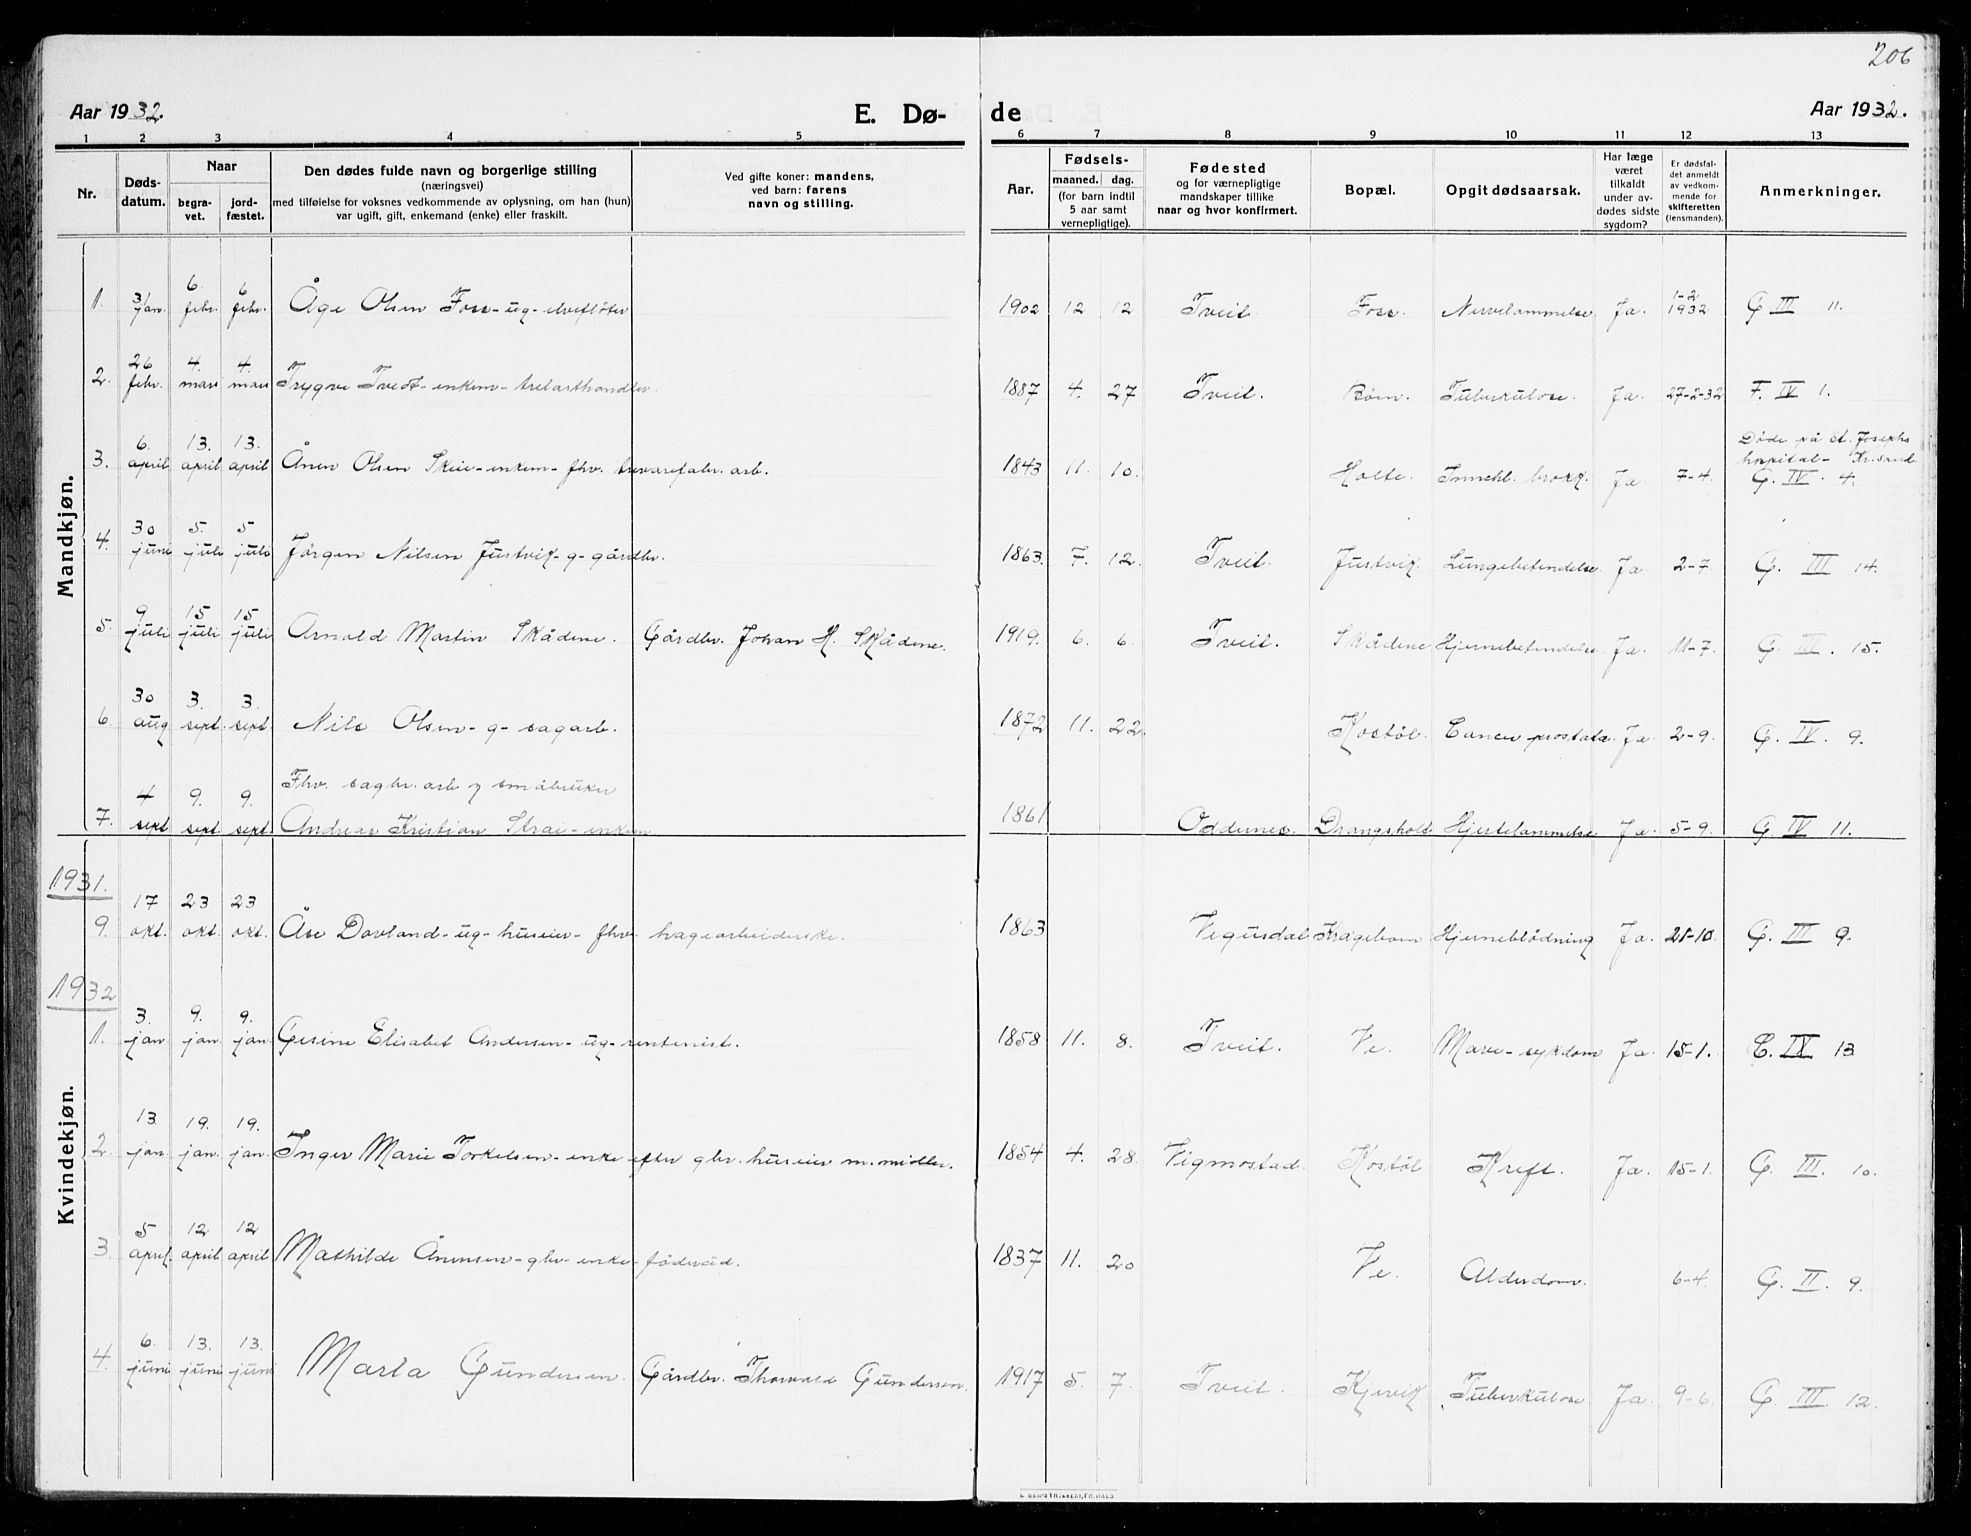 206
Aar 1932.
E. Dø-
de
Aar 1932.
1 2 3 4 5 6 7 8 9 10 11 12 13
Nr.
Døds-
datum.
Naar
begra-
vet.
jord-
fæstet.
Den dødes fulde navn og borgerlige stilling
(næringsvei)
med tilføielse for voksnes vedkommende av oplysning, om han (hun)
var ugift, gift, enkemand (enke) eller fraskilt.
Ved gifte koner: mandens,
ved barn: farens
navn og stilling.
Aar.
Fødsels-
maaned. dag.
(for barn indtil
5 aar samt
vernepligtige).
Fødested
og for værnepligtige
mandskaper tillike
naar og hvor konfirmert.
Bopæl.
Opgit dødsaarsak.
Har læge
været
tilkaldt
under av-
dødes sidste
sygdom?
Er dødsfal-
det anmeldt
av vedkom-
mende for
skifteretten
(lensmanden).
Anmerkninger.
Mandkjøn.
1. 31 jan. 6. febr. 6 febr. Åge Olsen Foss - ug - elvefløter 1902 12 12 Tveit. Foss. Nervelammelse Ja. 1-2 1932 G III 11.
2. 26 febr. 4. mars 4. mars Trygve Tvedt - enkem - trelasthandler. 1887 4. 27 Tveit. Bøen. Tuberkulose. Ja. 27-2-32 F. IV 1.
3. 6. april 13. april 13. april Ånen Olsen Skeie - enkem - fhv. trevarefabr. arb. 1843 11. 10. Holte. Innekl. brokk. Ja 7-4. Døde på St. Josephs hospital - Kr.sand. G. IV. 4.
4. 30 juni 5. juli 5 juli Jørgen Nilsen Justvik - g - gårdbr. 1863. 7. 12. Tveit. Justvik. Lungebetendelse. Ja 2-7. G. III 14.
5. 9 juli 15 juli 15 juli Arnold Martin Skådene. Gårdbr. Johan H. Skådene. 1919. 6. 6. Tveit. Skådene Hjernebetendelse Ja. 11-7. G. III. 15.
6. 30 aug 3. sept. 3. sept. Nils Olsen - g - sagarb. 1872 11. 22. Kostøl. Cancer prostata Ja 2-9. G. IV. 9.
7. 4 sept 9. sept 9. sept. Fhv. sagbr. arb og småbruker
Andreas Kristian Strai - enkem 1861 Oddernes. Drangsholt Hjertelammelse Ja. 5-9. G. IV 11.
Kvindekjøn.
1931.
9. 17 okt. 23 okt. 23 okt. Åse Dovland - ug - huseier - fhv. hagearbeiderske. 1863 Vegusdal Kragebom Hjerneblødning Ja. 21-10. G. III 9.
1932
1. 3. jan. 9. jan. 9. jan. Gesine Elisabet Andersen - ug - rentenist. 1858 11. 8. Tveit. Ve. Mave-sykdom Ja. 15-1. C. IV 13
2. 13 jan. 19. jan. 19. jan. Inger Marie Torkelsen - enke efter gbr. huseier m. midler. 1854 4. 28. Vigmostad. Kostøl Kreft. Ja. 15-1. G. III. 10.
3. 5 april. 12 april 12 april Mathilde Ånensen - gbr - enke - føderåd. 1837 11. 20 Ve. Alderdom. 6-4. G. II. 9.
4. 6. juni 13. juni 13. juni Marta Gundersen. Gårdbr. Thorvald Gundersen. 1917 5. 7. Tveit. Kjevik Tuberkulose Ja. 9-6. G. III. 12.